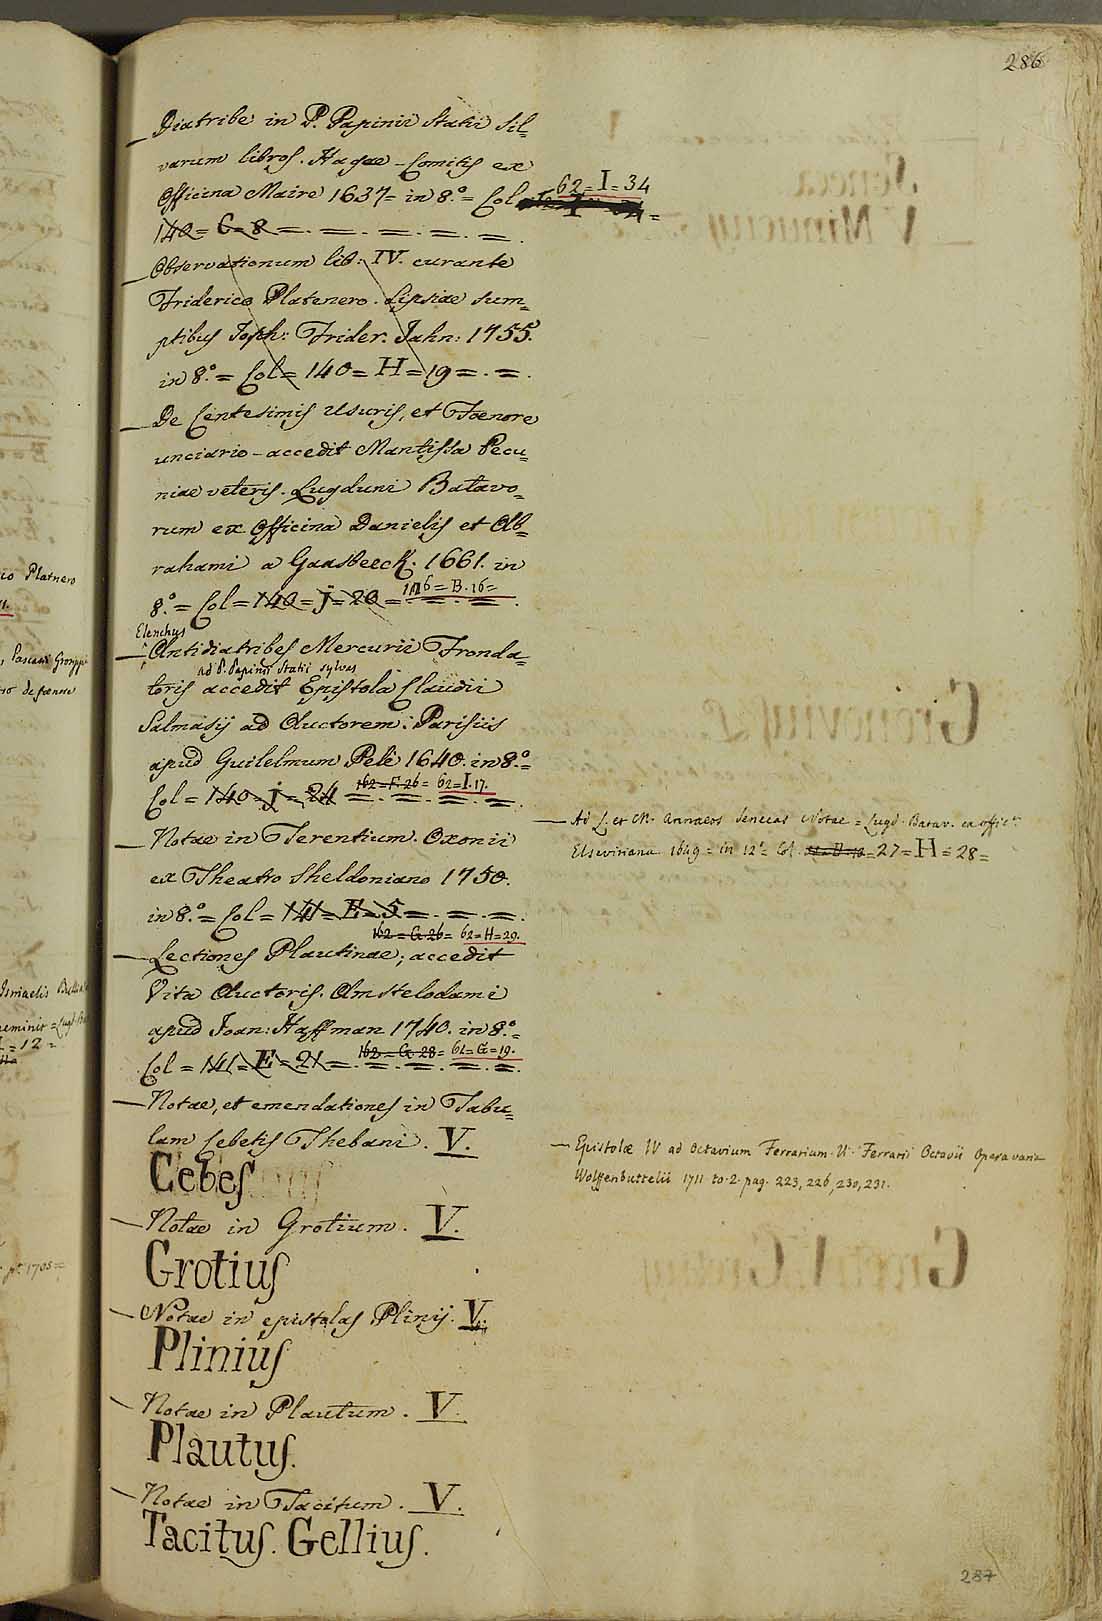 286
Diatribe in P. Papinii Statii Sil=
varum libros. Hagae-Comitis ex
Officina Maire 1637= in 8.º = Col 62=I=34
140= C=8 =.=.=.=.=.
Observationum lib: IV. curante
Friderico Platenero. Lipsiae sum=
ptibus Joseh: Frider. Jahn: 1755.
in 8.º = Col = 140 = H = 19 =.=.
De Centesimis Usuris, et Foenore
unciario - accedit Mantissa Pecu=
niae veteris. Lugduni Batavo=
rum ex Officina Danielis et Ab=
rahami a Gaasbeeck. 1661. in
8.º = Col = 140 = j = 20 = 116 = B. 16=
Elenchus
Antidiatribes Mercurii Fronda=
ad P. Papinii Statii sylvas
toris accedit Epistola Claudii
Salmasij ad Auctorem: Parisiis
apud Guilelmum Pelè 1640. in 8.º=
Col = 140= j = 24 = 162=F.26= 62=I.17.
Notae in Terentium. Oxonii
ex Theatro Sheldoniano 1750.
in 8.º = Col = 141= E=5=.=.=.
162=G.26= 62=H=29.
Lectiones Plautinae; accedit
Vita Auctoris. Amstelodami
apud Joan: Haffman 1740. in 8.º=
Col = 141= E=21= 162=G.28= 62=G=19.
Notae, et emendationes in Tabu=
lam Cebetis Thebani. V.
Cebes
Notae in Grotium. V.
Grotius
Notae in epistolas Plinij. V.
Plinius
Notae in Plautum. V.
Plautus.
Notae in Tacitum. V.
Tacitus. Gellius.
Ad L. et M. Annaeos Senecas Notae = Lugd. Batav. ex offic.
Elseviriana 1649 = in 12.º = Col. 27=H=28=
Epistolae IV ad Octavium Ferrarium. V. Ferrarii Octavii Opera varia
Wolffenbuttelii 1711 to. 2. pag. 223, 226, 230, 231.
287